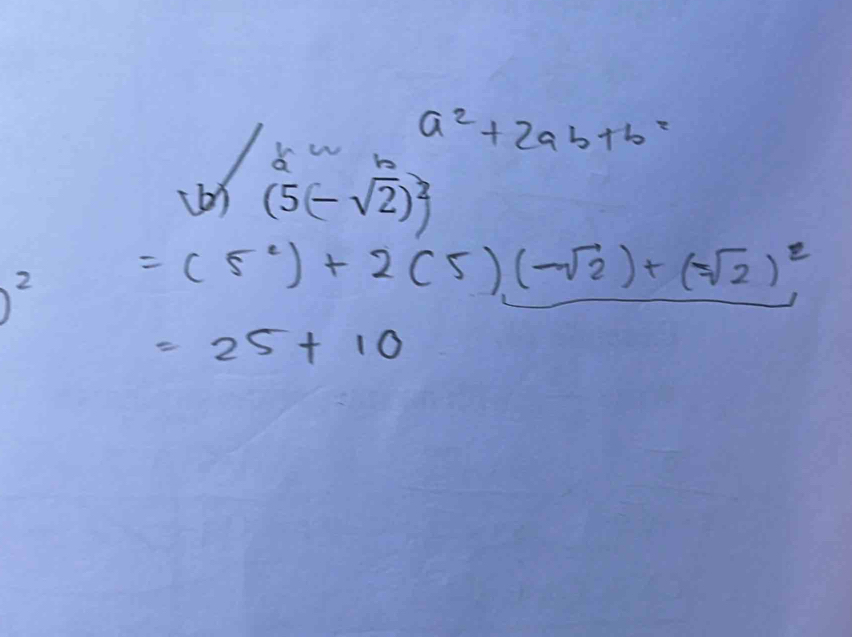 a² + 2ab + b²
a b
(b) (5 - √2)²
= (5²) + 2(5)(-√2) + (-√2)²
)²
= 25 + 10